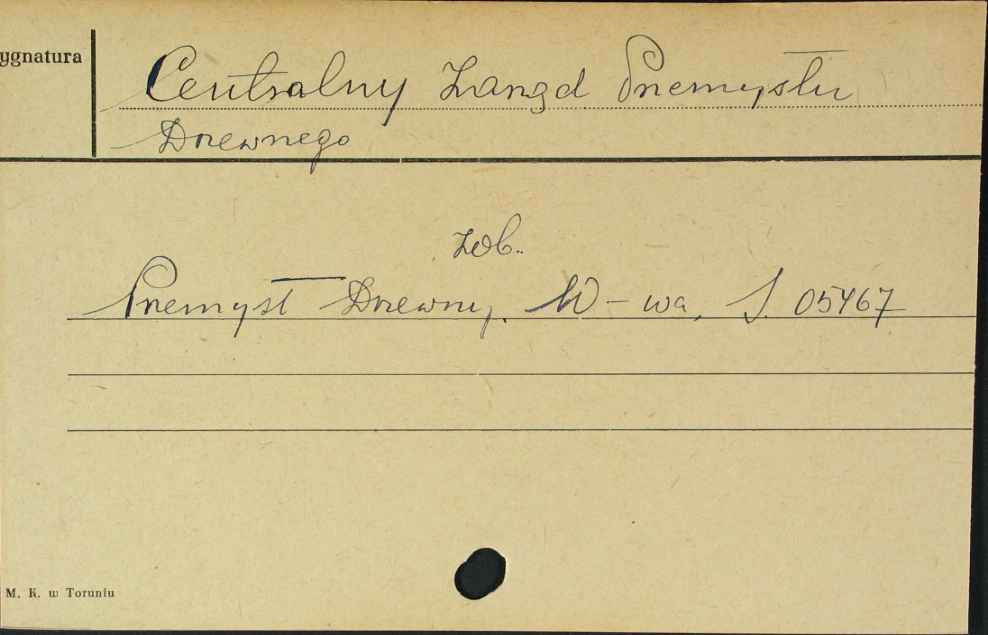 ygnatura
Centralny Zarząd Przemysłu
Drzewnego
zob.
Przemysł Drzewny. W-wa, S. 05467
M. K. w Toruniu